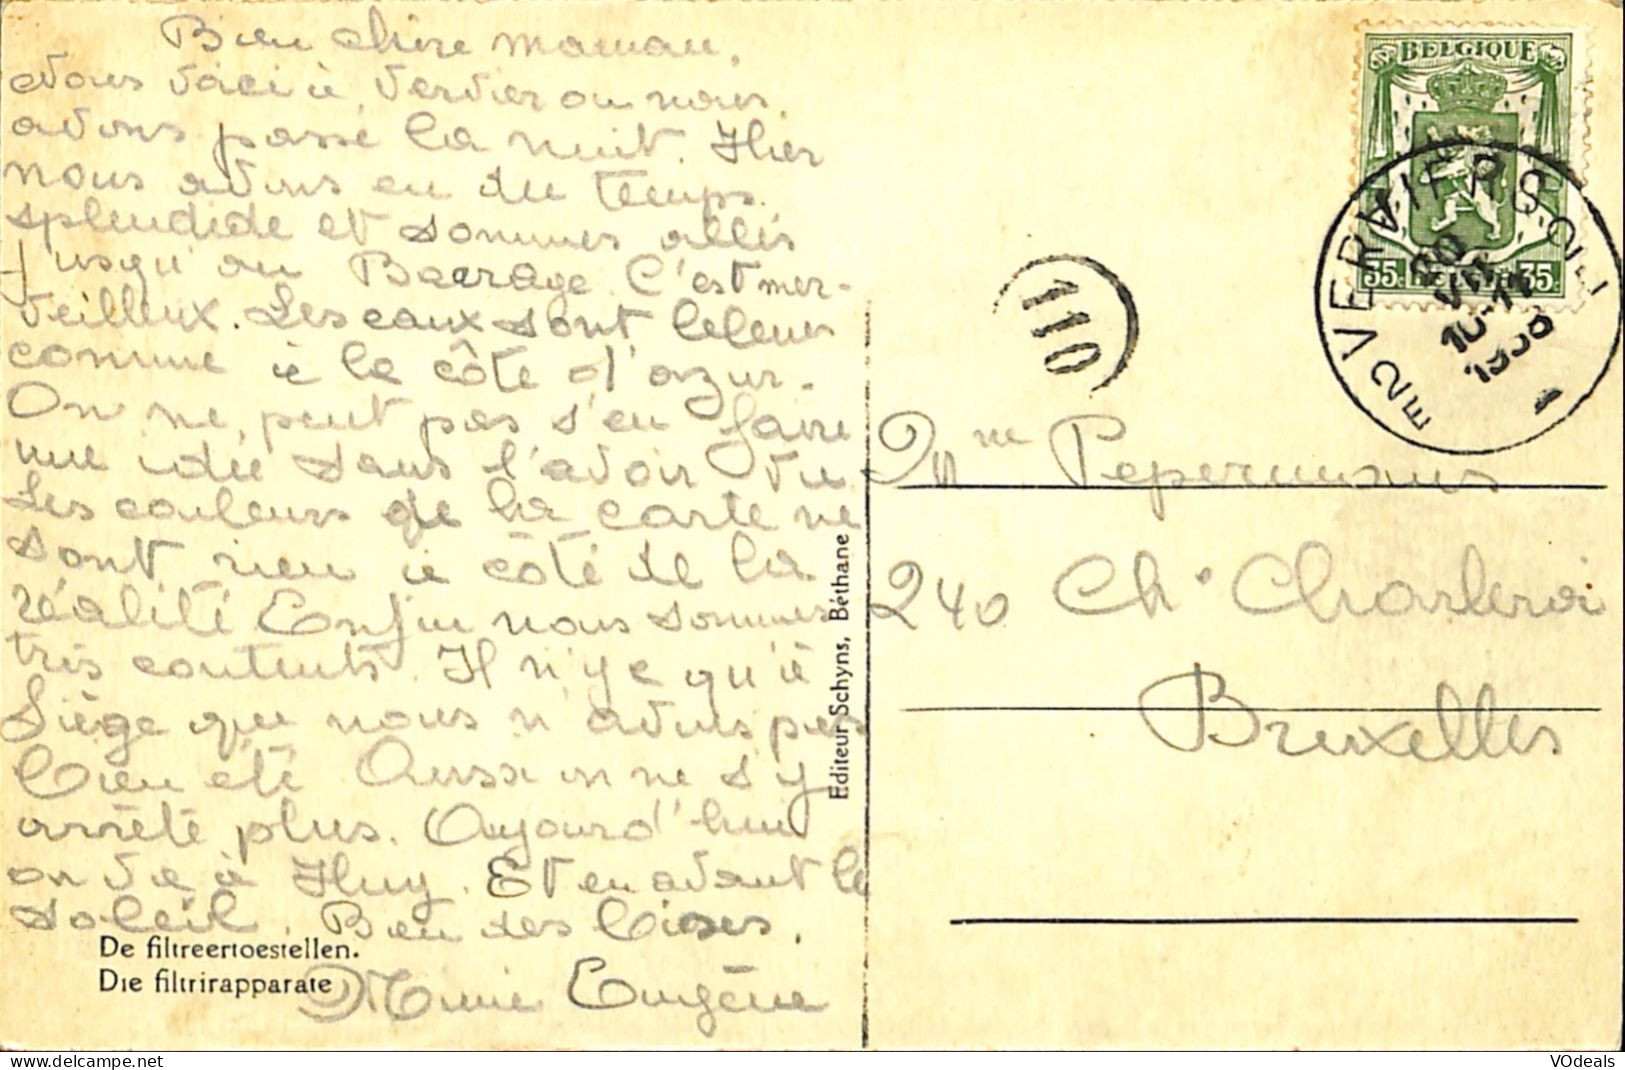 Bien chère maman,
Nous voici à Vervier où nous
avons passé la nuit. Hier
nous avons eu du temps
splendide et sommes allés
jusqu'au Barrage. C'est mer-
veilleux. Les eaux sont bleues
comme à la côte d'azur.
On ne peut pas s'en faire
une idée sans l'avoir vu
Les couleurs de la carte ne
sont rien à côté de la
réalité Enfin nous sommes
très contents. Il n'y a qu'à
Liège que nous n'avons pas
bien été Aussi on ne s'y
arrête plus. Aujourd'hui
on va à Huy. Et en avant le
soleil. Bien des bises,
Mimie Eugène
De filtreertoestellen.
Die filtrirapparate
Editeur Schyns, Béthane
110
BELGIQUE
35c
35c
E2 VERVIERS
VII
10-11
Mme Pepermans
240 Ch. Charleroi
Bruxelles
VOdeals